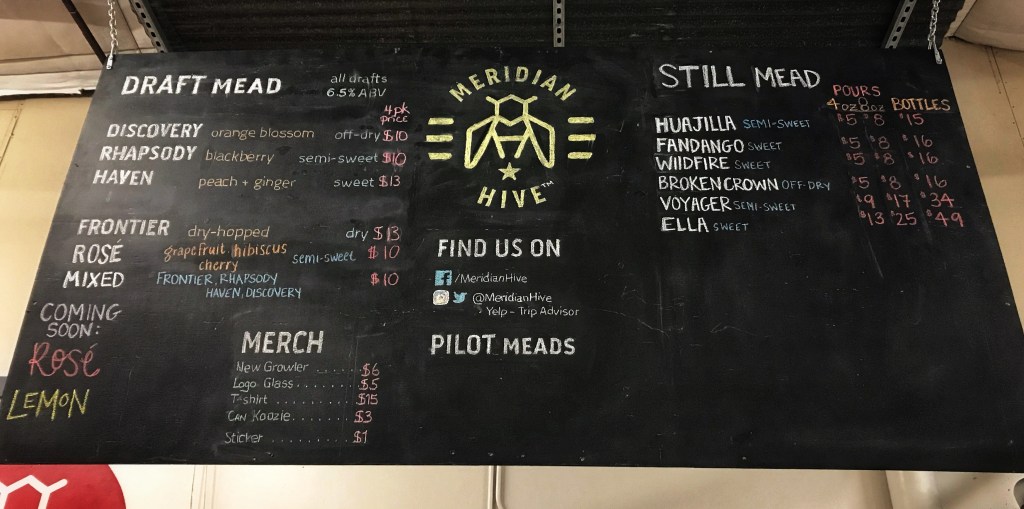 DRAFT MEAD
all drafts
6.5% ABV
4pk
price
DISCOVERY orange blossom off-dry $10
RHAPSODY blackberry semi-sweet $10
HAVEN peach + ginger sweet $13
FRONTIER dry-hopped dry $13
ROSÉ grapefruit hibiscus semi-sweet $10
cherry
MIXED FRONTIER, RHAPSODY $10
HAVEN, DISCOVERY
COMING
SOON:
Rosé
LEMON
MERCH
New Growler ...... $6
Logo Glass ........ $5
T-shirt ........... $15
Can Koozie ....... $3
Sticker .......... $1
MERIDIAN
HIVE™
FIND US ON
/MeridianHive
@MeridianHive
Yelp - Trip Advisor
PILOT MEADS
STILL MEAD
POURS
4oz 8oz BOTTLES
HUAJILLA SEMI-SWEET $5 $8 $15
FANDANGO SWEET $5 $8 $16
WILDFIRE SWEET $5 $8 $16
BROKEN CROWN OFF-DRY $5 $8 $16
VOYAGER SEMI-SWEET $9 $17 $34
ELLA SWEET $13 $25 $49